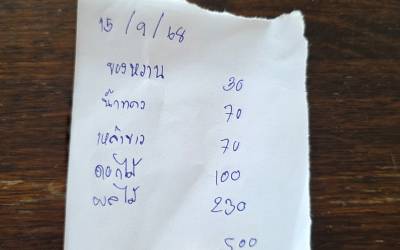 15/9/68
ของหวาน 30
น้ำแดง 70
เหล้าขาว 70
ดอกไม้ 100
ผลไม้ 230
500